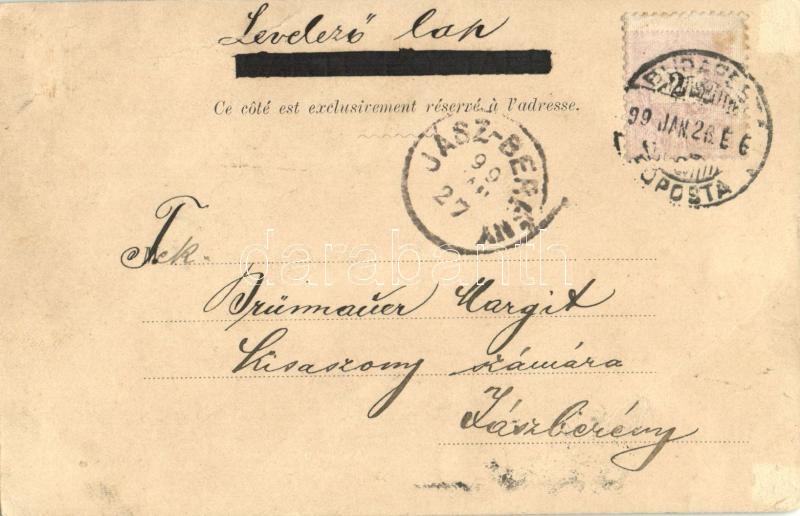 Levelező lap
Ce côté est exclusivement réservé à l'adresse.
BUDAPEST
99 JAN. 26. E 6
FŐPOSTA
JÁSZ-BERÉNY
99
JAN
27
Tek.
Brünnauer Margit
Kisaszony számára
Jászberény
darabanth